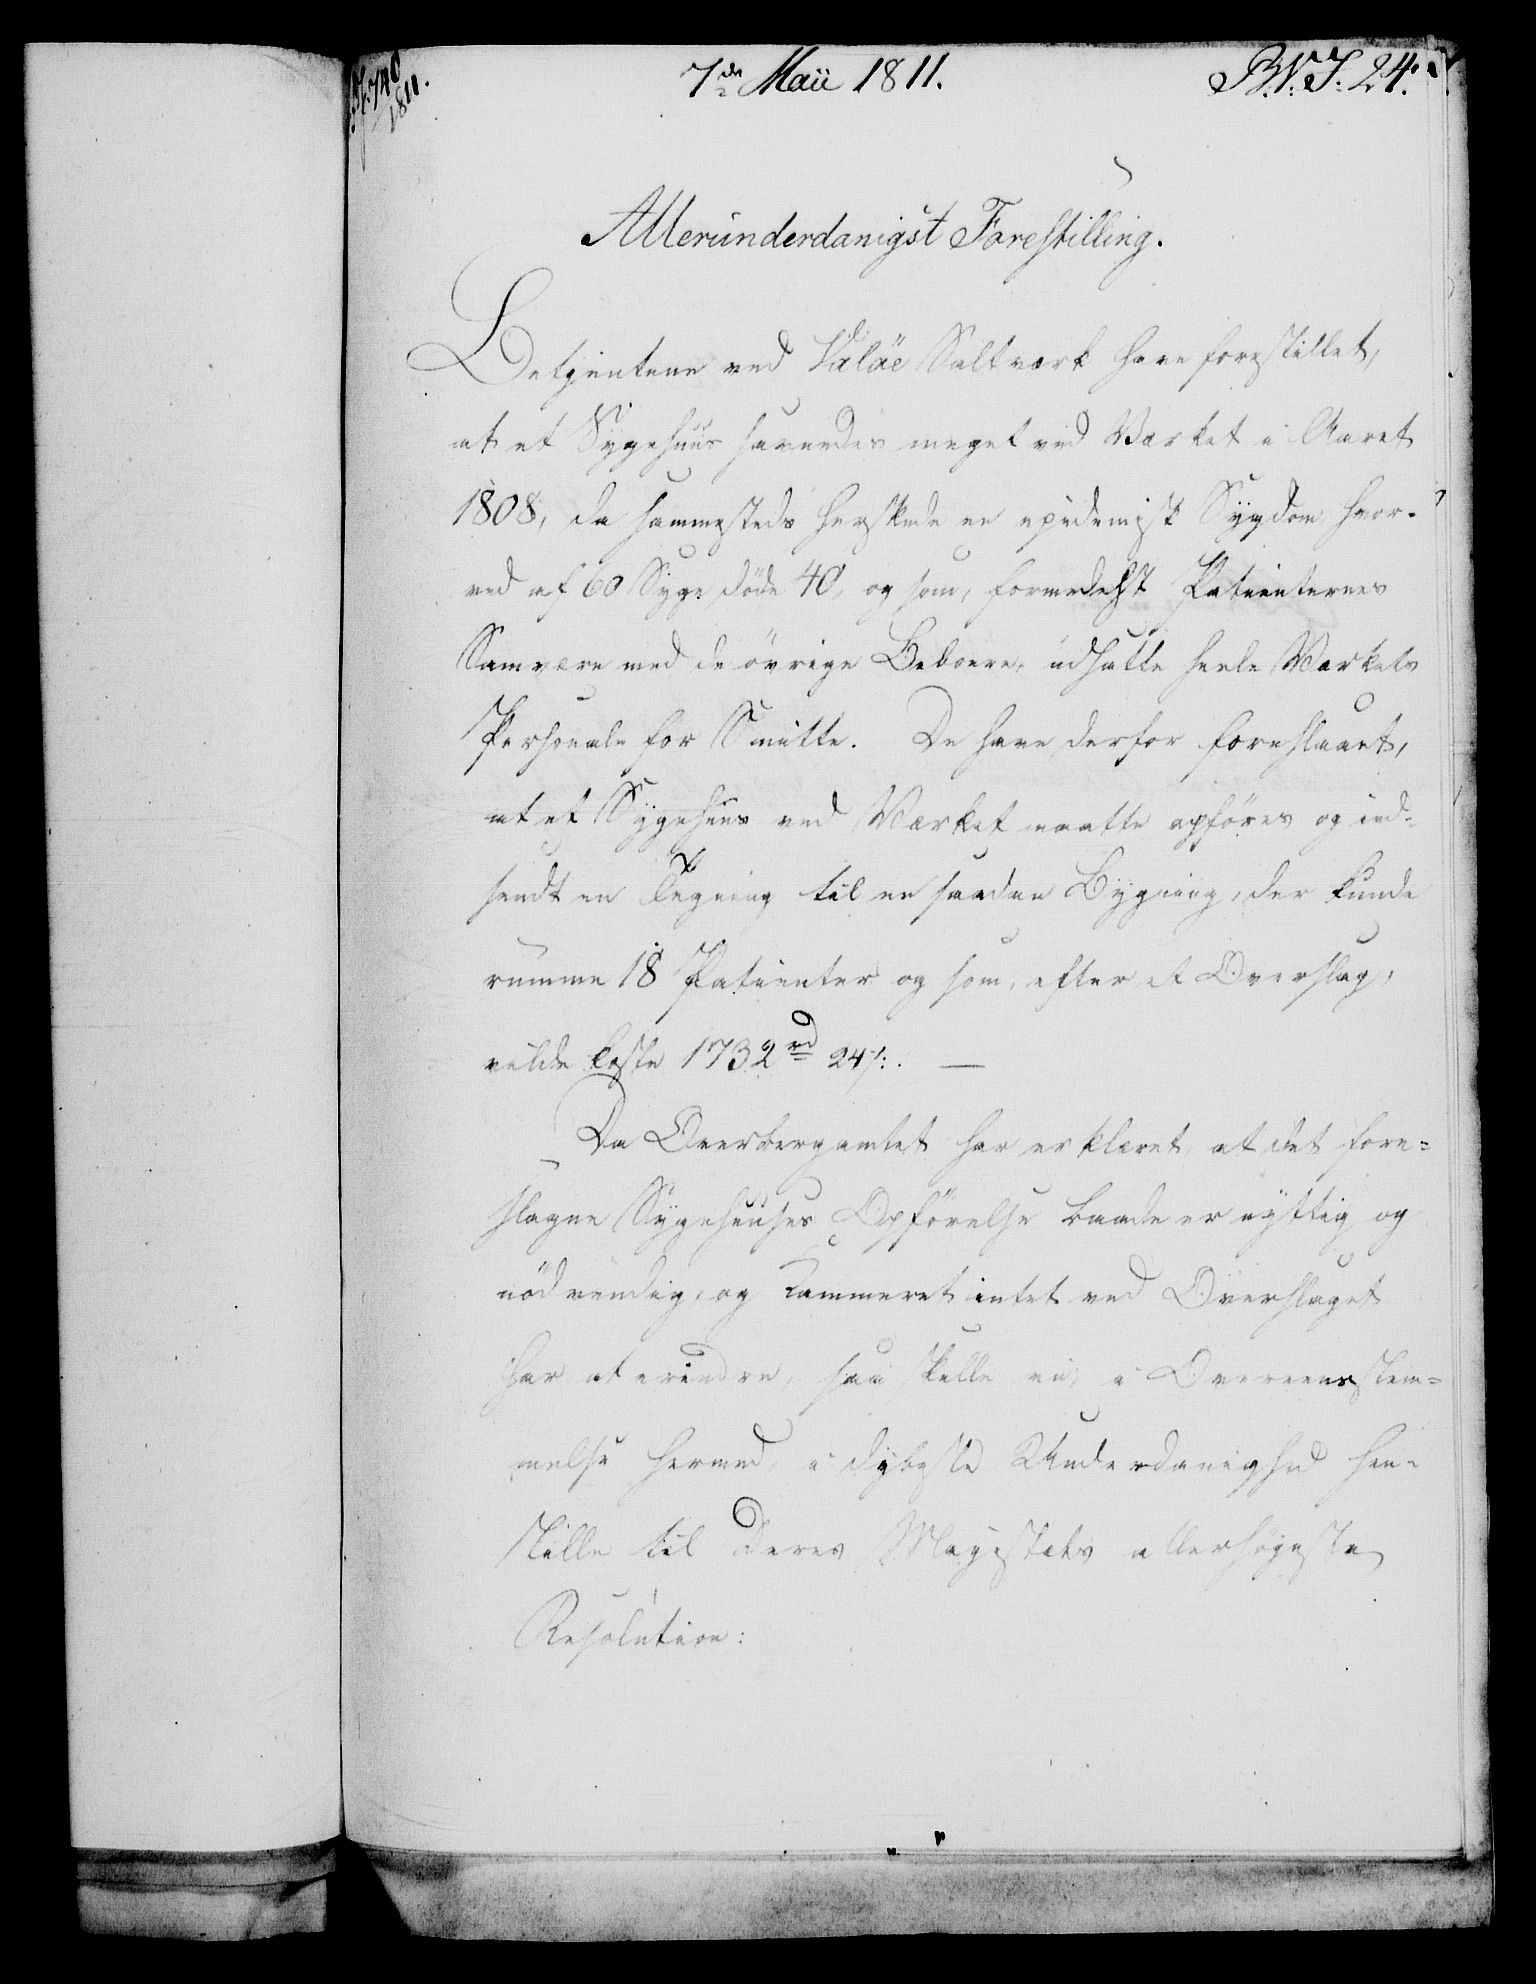 740
1811.
7de Maii 1811.
B. V. J: 24.
Allerunderdanigst Forestilling.
Betjentene ved Valøe Saltværk have forestillet,
at et Sygehuus savnedes meget ved Værket i Aaret
1808, da sammesteds herskede en epidemisk Sygdom, hvor-
ved af 60 Syge døde 40, og som, formedelst Patienternes
Samværn med de øvrige Beboere, udsatte heele Værkets
Personale for Smitte. De have derfor foreslaaet,
at et Sygehuus ved Værket maatte opføres og ind-
sendt en Tegning til en saadan Bygning, der kunde
rumme 18 Patienter og som, efter et Overslag,
vilde koste 1732 rd 24 s:. —
Da Overbergamtet har erklæret, at det fore=
slagne Sygehuuses Opførelse baade er nyttig og
nødvendig, og Kammeret intet ved Overslaget
har at erindre, saa skulle vi, i Overeensstem=
melse hermed, i dybeste Underdanighed hen-
stille til Deres Majestæts allerhøjeste
Resolution: